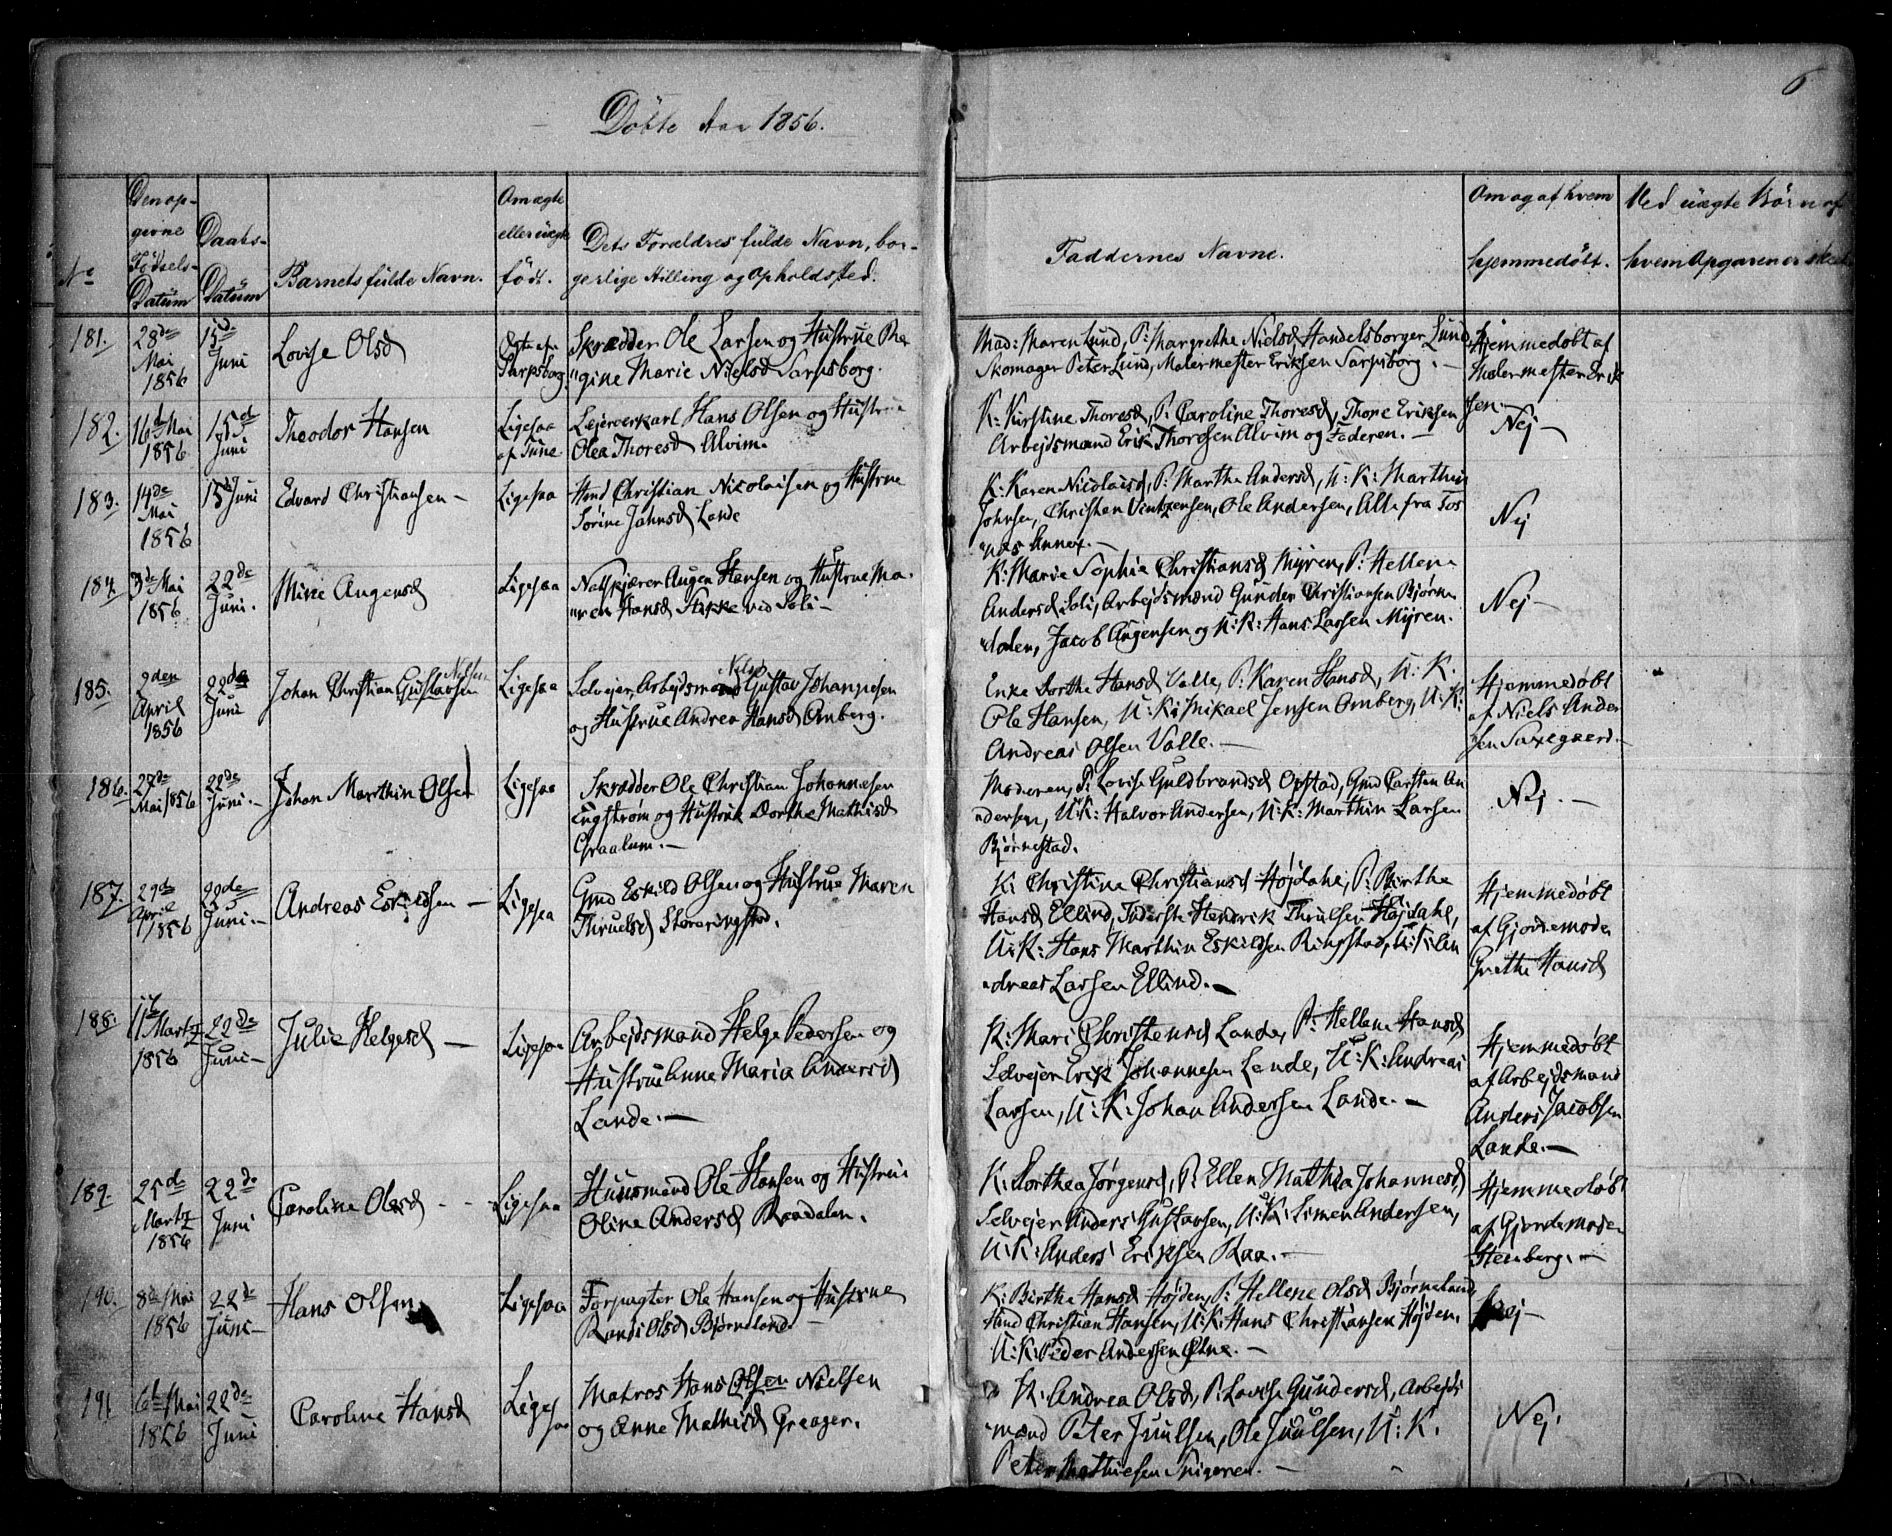 6
Döbte Aar 1856.
No
Den op-
givne
Födsels-
Datum
Daabs-
Datum
Barnets fulde Navn.
Om ægte
eller uægte
födt.
Dets Forældres fulde Navn, bor-
gerlige Stilling og Opholdsted.
Faddernes Navne.
Om og af hvem
hjemmedøbt.
Ved uægte Børn af
hvem Opgaven er skeet
181.
28de
Mai
1856
15d.
Juni
Lovise Olsd
Ægte af
Sarpsborg
Skrædder Ole Larsen og Hustrue Re
"gine Marie Nielsd Sarpsborg.
Mad: Maren Lund, P: Margrethe Nielsd, Handelsborger Lund,
Skomager Peter Lund, Malermester Eriksen Sarpsborg. -
Hjemmedøbt af
Malermester Erik
sen.
182.
16d Mai
1856
15d
Juni
Theodor Hansen
Ligesaa
af Tune
Leierverkarl Hans Olsen og Hustrue
Olea Thoresd Alvim.
K: Kirstine Thoresd, P: Caroline Thoresd, Thore Eriksen
Arbejdsmænd Erik Thoresen Alvim og Faderen. -
Nej -
183.
14de
Mai
1856
15d Juni
Edvard Christiansen -
Ligesaa
Hmd Christian Nicolaisen og Hustrue
Sørine Jahnsd Lande
K: Karen Nicolaisd, P: Marthe Andersd, U: K: Marthin
Johnsen, Christen Vintzensen, Ole Andersen, Alle fra Tos
"næs Annex. -
Nej
184.
3de Mai
1856
22de
Juni.
Mine Augensd
Ligesaa
Natskjærer Augen Hansen og Hustrue Ma-
"ren Hansd Stikke ved Soli -
K: Marie Sophie Christiansd Myren, P: Hellene
Andersd Soli, Arbejdsmænd Gunder Christiansen Bjørne
"dalen, Jacob Augensen og U: K: Hans Larsen Myren.
Nej -
185.
2den
April
1856
22de
Juni
Johan Christian Gustavsen
Nilsen
Ligesaa
Selvejer Arbejdsmand Gustav Johannesen
Nils
og Hustrue Andrea Hansd Omberg.
Enke Dorthe Hansd Valle, P: Karen Hansd, U: K:
Ole Hansen, U: K: Mikael Jensen Omberg, U: K:
Andreas Olsen Valle. -
Hjemmedøbt
af Niels Ander
sen Saxegaard. -
186.
27de
Mai 1856
22de
Juni. -
Johan Marthin Olsen
Ligesaa
Skrædder Ole Christian Johannesen
Engstrøm og Hustrue Dorthe Mathisd
Graalum. -
Moderen, P: Lovise Guldbrandsd Opstad, Gmd Carsten An
"dersen, U: K: Halvor Andersen, U: K: Marthin Larsen
Bjørnestad.
Nej. -
187.
29de
April
1856
22de
Juni. -
Andreas Eskildsen -
Ligesaa
Gmd Eskild Olsen og Hustrue Maren
Thruelsd Storeringstad.
K: Christine Christiansd Højdahl, P: Birthe
Hansd Ellind, Inderste Hendrik Thrulsen Højdahl,
U: K: Hans Marthin Eskildsen Ringstad, U: K: An
"dreas Larsen Ellind. -
Hjemmedøbt
af Gjordemoder
Grethe Hansd
188.
17de
Martz
1856
22de
Juni -
Julie Helgesd -
Ligesaa
Arbejdsmand Helge Pedersen og
Hustrue Anne Maria Andersd
Lande. -
K: Mari Christensd Lande, P: Hellene Hansd,
Selvejer Erik Johannesen Lande, U: K: Andreas
Larsen, U: K: Johan Andersen Lande. -
Hjemmedøbt
af Arbejdsmand
Anders Jacobsen
Lande. -
189.
25d
Martz
1856
22de
Juni
Caroline Olesd - -
Ligesaa
Huusmand Ole Hansen og Hustrue
Oline Andersd Raadalen.
K: Dorthea Jørgensd, P: Ellen Mathea Johannesd,
Selvejer Anders Gustavsen, U: K: Simen Andersen,
U: K: Anders Eriksen Raa. -
Hjemmedøbt
af Gjordemoder
Stenberg. -
190.
8de Mai
1856
22de
Juni -
Hans Olsen
Ligesaa
Forpagter Ole Hansen og Hustrue
Randi Olsd Bjørneland -
K: Birthe Hansd Højden, P: Hellene Olsd Bjørneland,
Hmd Christian Hansen, U: K: Hans Christiansen Højden,
U: K: Peder Andersen -
Nej -
191
6te Mai
1856
22de
Juni
Caroline Hansd
Ligesaa
Matros Hans Olsen Nielsen
og Anne Mathisd Greaager.
K: Andrea Olsd, P: Lovise Gundersd, Arbejds
"mænd Peter Juulsen, Ole Juulsen, U: K:
Peter Mathiesen Spigeren. -
Nej.